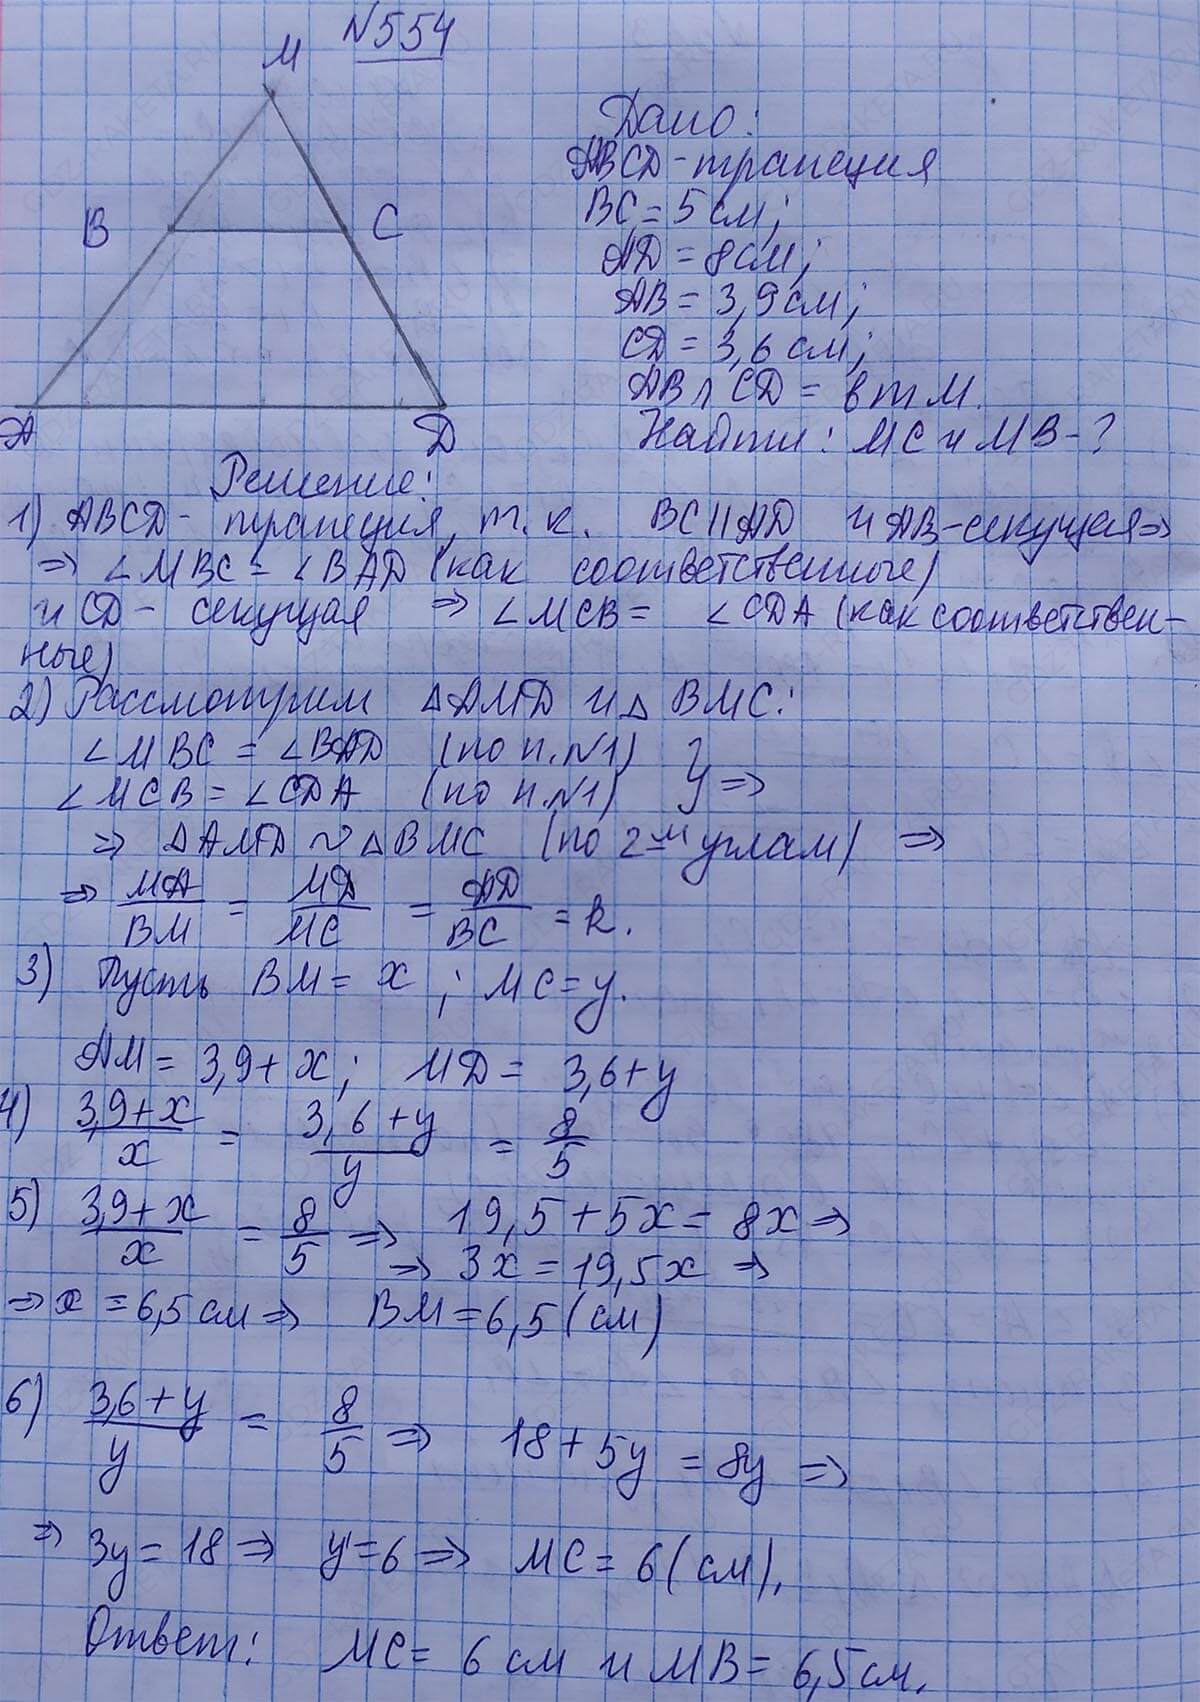 N554
M
B
C
A
D
Дано:
ABCD - трапеция
BC = 5 см;
AD = 8 см;
AB = 3,9 см;
CD = 3,6 см;
AB ∩ CD = в т M.
Найти: MC и MB - ?
Решение:
1) ABCD - трапеция, т.к. BC || AD и AB - секущая ⇒
⇒ ∠MBC = ∠BAD (как соответственные)
и CD - секущая ⇒ ∠MCB = ∠CDA (как соответствен-
ные)
2) Рассмотрим △AMD и △BMC:
∠MBC = ∠BAD (по п.N1)
∠MCB = ∠CDA (по п.N1) } ⇒
⇒ △AMD ~ △BMC (по 2-м углам) ⇒
⇒ MA/BM = MD/MC = AD/BC = k.
3) Пусть BM = x ; MC = y.
AM = 3,9 + x; MD = 3,6 + y
4) (3,9 + x)/x = (3,6 + y)/y = 8/5
5) (3,9 + x)/x = 8/5 ⇒ 19,5 + 5x = 8x ⇒
⇒ 3x = 19,5x ⇒
⇒ x = 6,5 см ⇒ BM = 6,5 (см)
6) (3,6 + y)/y = 8/5 ⇒ 18 + 5y = 8y ⇒
⇒ 3y = 18 ⇒ y = 6 ⇒ MC = 6 (см).
Ответ: MC = 6 см и MB = 6,5 см.